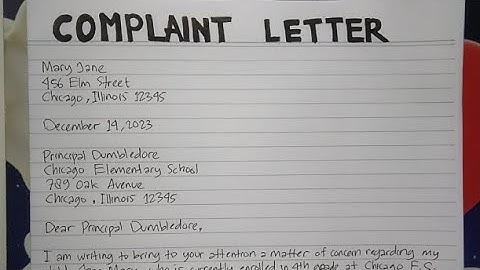 COMPLAINT LETTER
Mary Jane
456 Elm Street
Chicago, Illinois 12345
December 14, 2023
Principal Dumbledore
Chicago Elementary School
789 Oak Avenue
Chicago, Illinois 12345
Dear Principal Dumbledore,
I am writing to bring to your attention a matter of concern regarding my
who is currently enrolled in 4th grade at Chicago E.S.